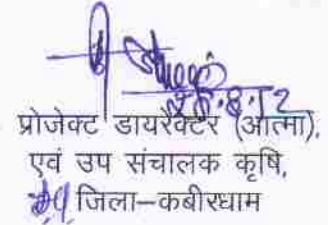 प्रोजेक्ट डायरेक्टर (आत्मा),
एवं उप संचालक कृषि,
जिला–कबीरधाम